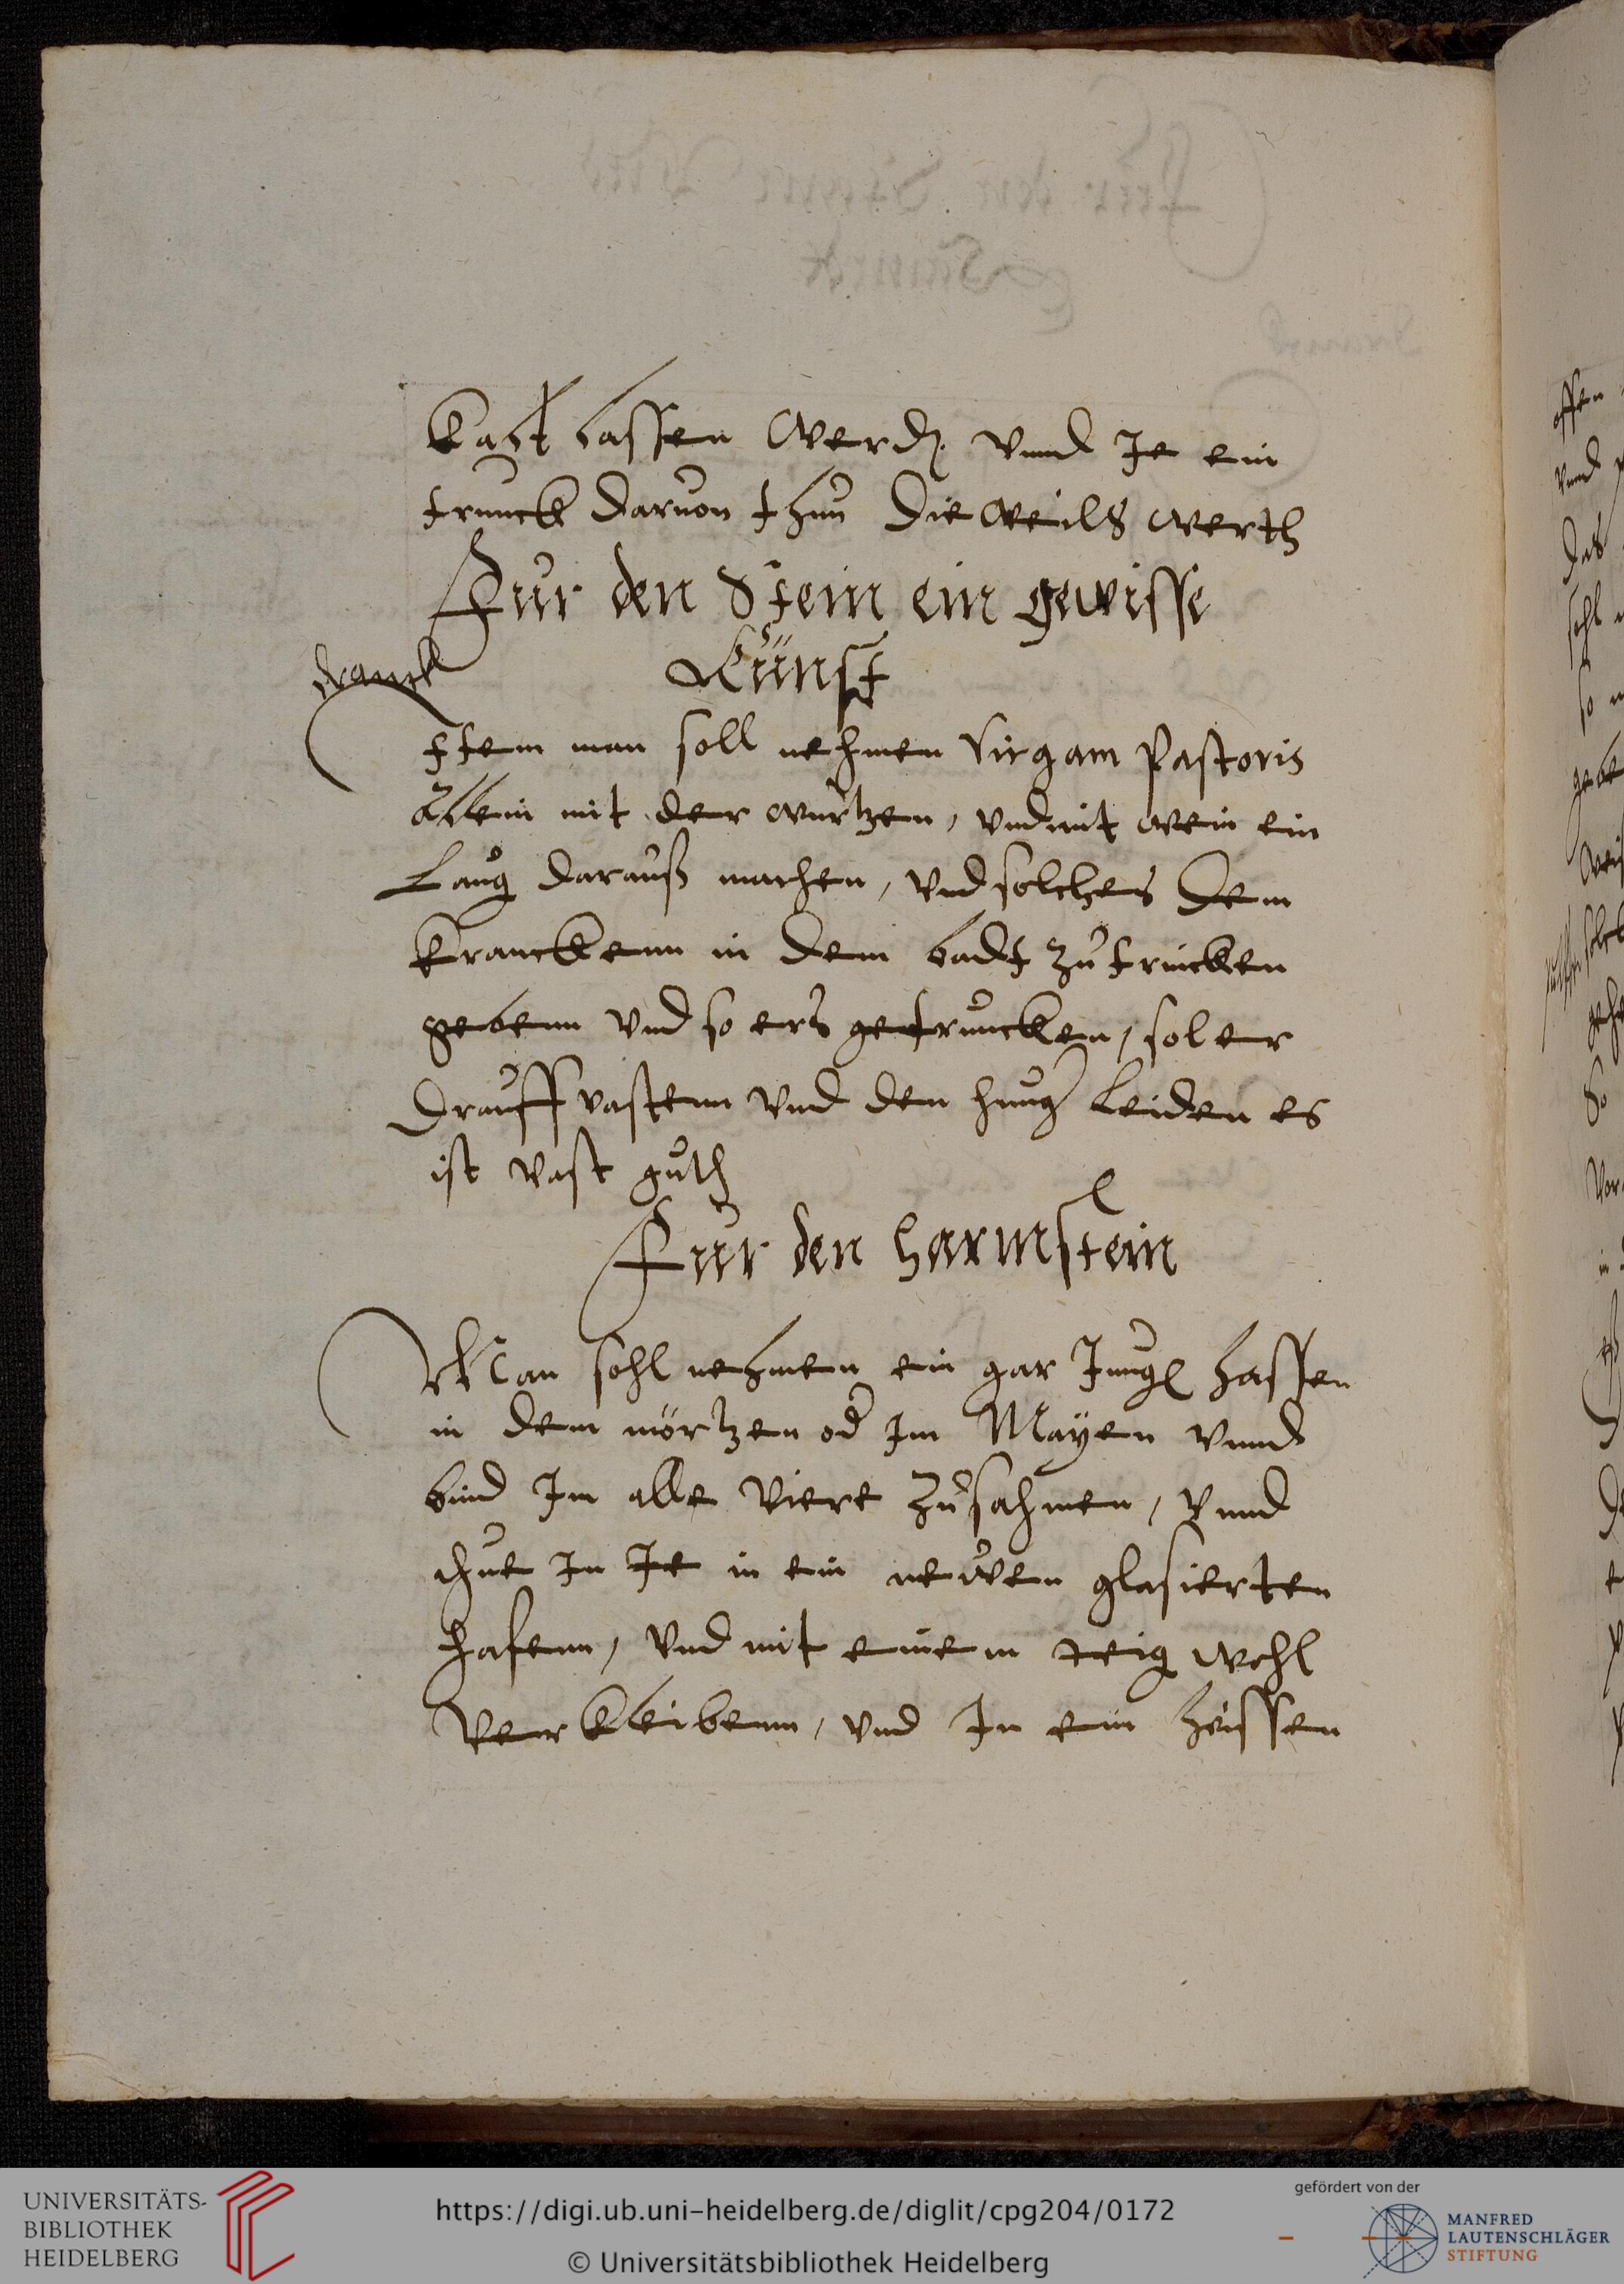 kalt lassen werdẽ vnnd Je ein
trunck daruon thun die weils werth
Fur den Stein ein gewisse
Kunst
dranck
Item man soll nehmen Virgam Pastoris
Allein mit der wurtzen, vnd mit wein ein
Laug darauß machen, vnd solches dem
kranckenn in dem badt zu trincken
gebenn vnd so ers getruncken, sol er
drauff vastenn vnd den hung̃ leiden es
ist vast guth
Fur den harmstein
Man sohl nehmen ein gar Jungẽ hassen
in dem mörtzen od̃ Im Mayen vnnd
bind Im alle viere zusahmen, vnnd
thue In Je in ein newen glasierten
hafenn, vnd mit einem teig wohl
verkleibenn, vnd In ein heissen
UNIVERSITÄTS-
BIBLIOTHEK
HEIDELBERG
https://digi.ub.uni-heidelberg.de/diglit/cpg204/0172
© Universitätsbibliothek Heidelberg
gefördert von der
MANFRED
LAUTENSCHLÄGER
STIFTUNG